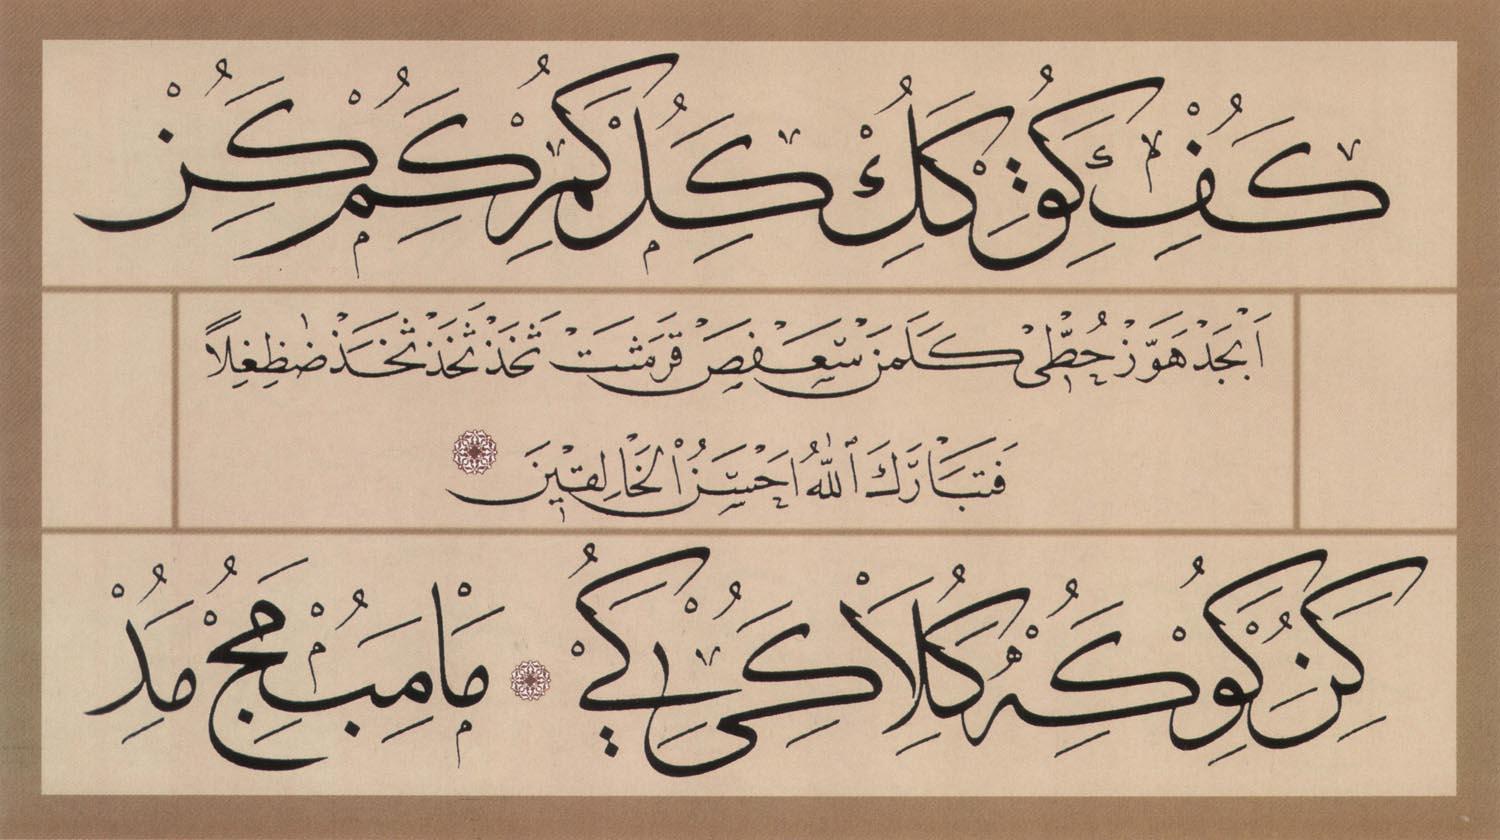 كف كق كك كل كم كم كن
اَبْجَدْ هَوَّزْ حُطِّىْ كَلَمَنْ سَعْفَصْ قَرَشَتْ ثَخَذْ ثَخَذْ ثَخَذْ ضَظِغِلاً
فَتَبَارَكَ اللّٰهُ اَحْسَنُ الْخَالِقِيْنَ
كن كو كه كلا كى كي ما مب مج مد